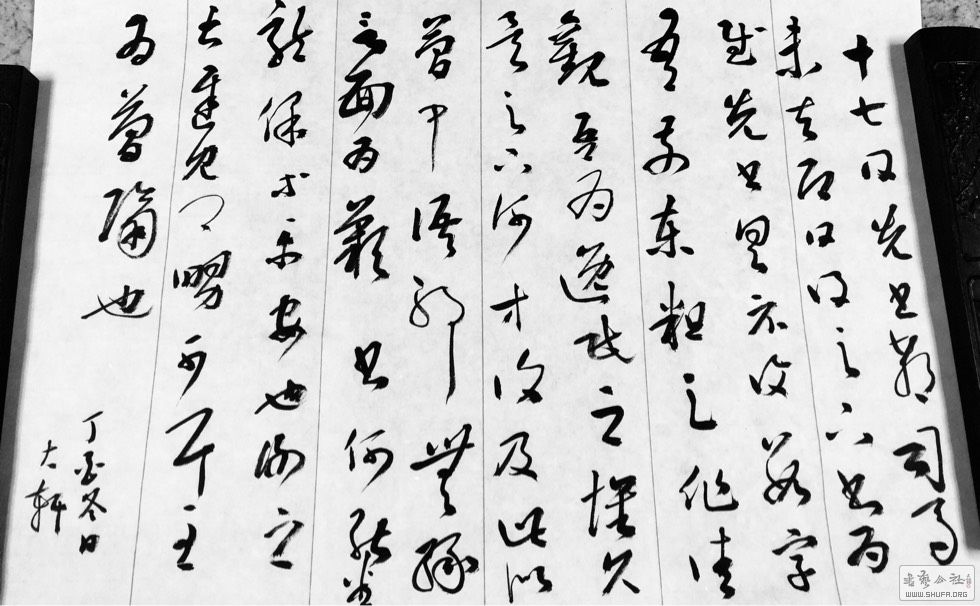 十七日先書郗司馬
未去即日得足下書為
慰先書具示復數字
吾前東粗足作佳
觀吾為逸民之懷久
矣足下何等復及此似
夢中語耶無緣
言面為歎書何能悉
龍保等平安也謝之
甚遲見卿舅可耳至
為簡隔也
丁酉冬日
大軒
书艺公社
WWW.SHUFA.ORG